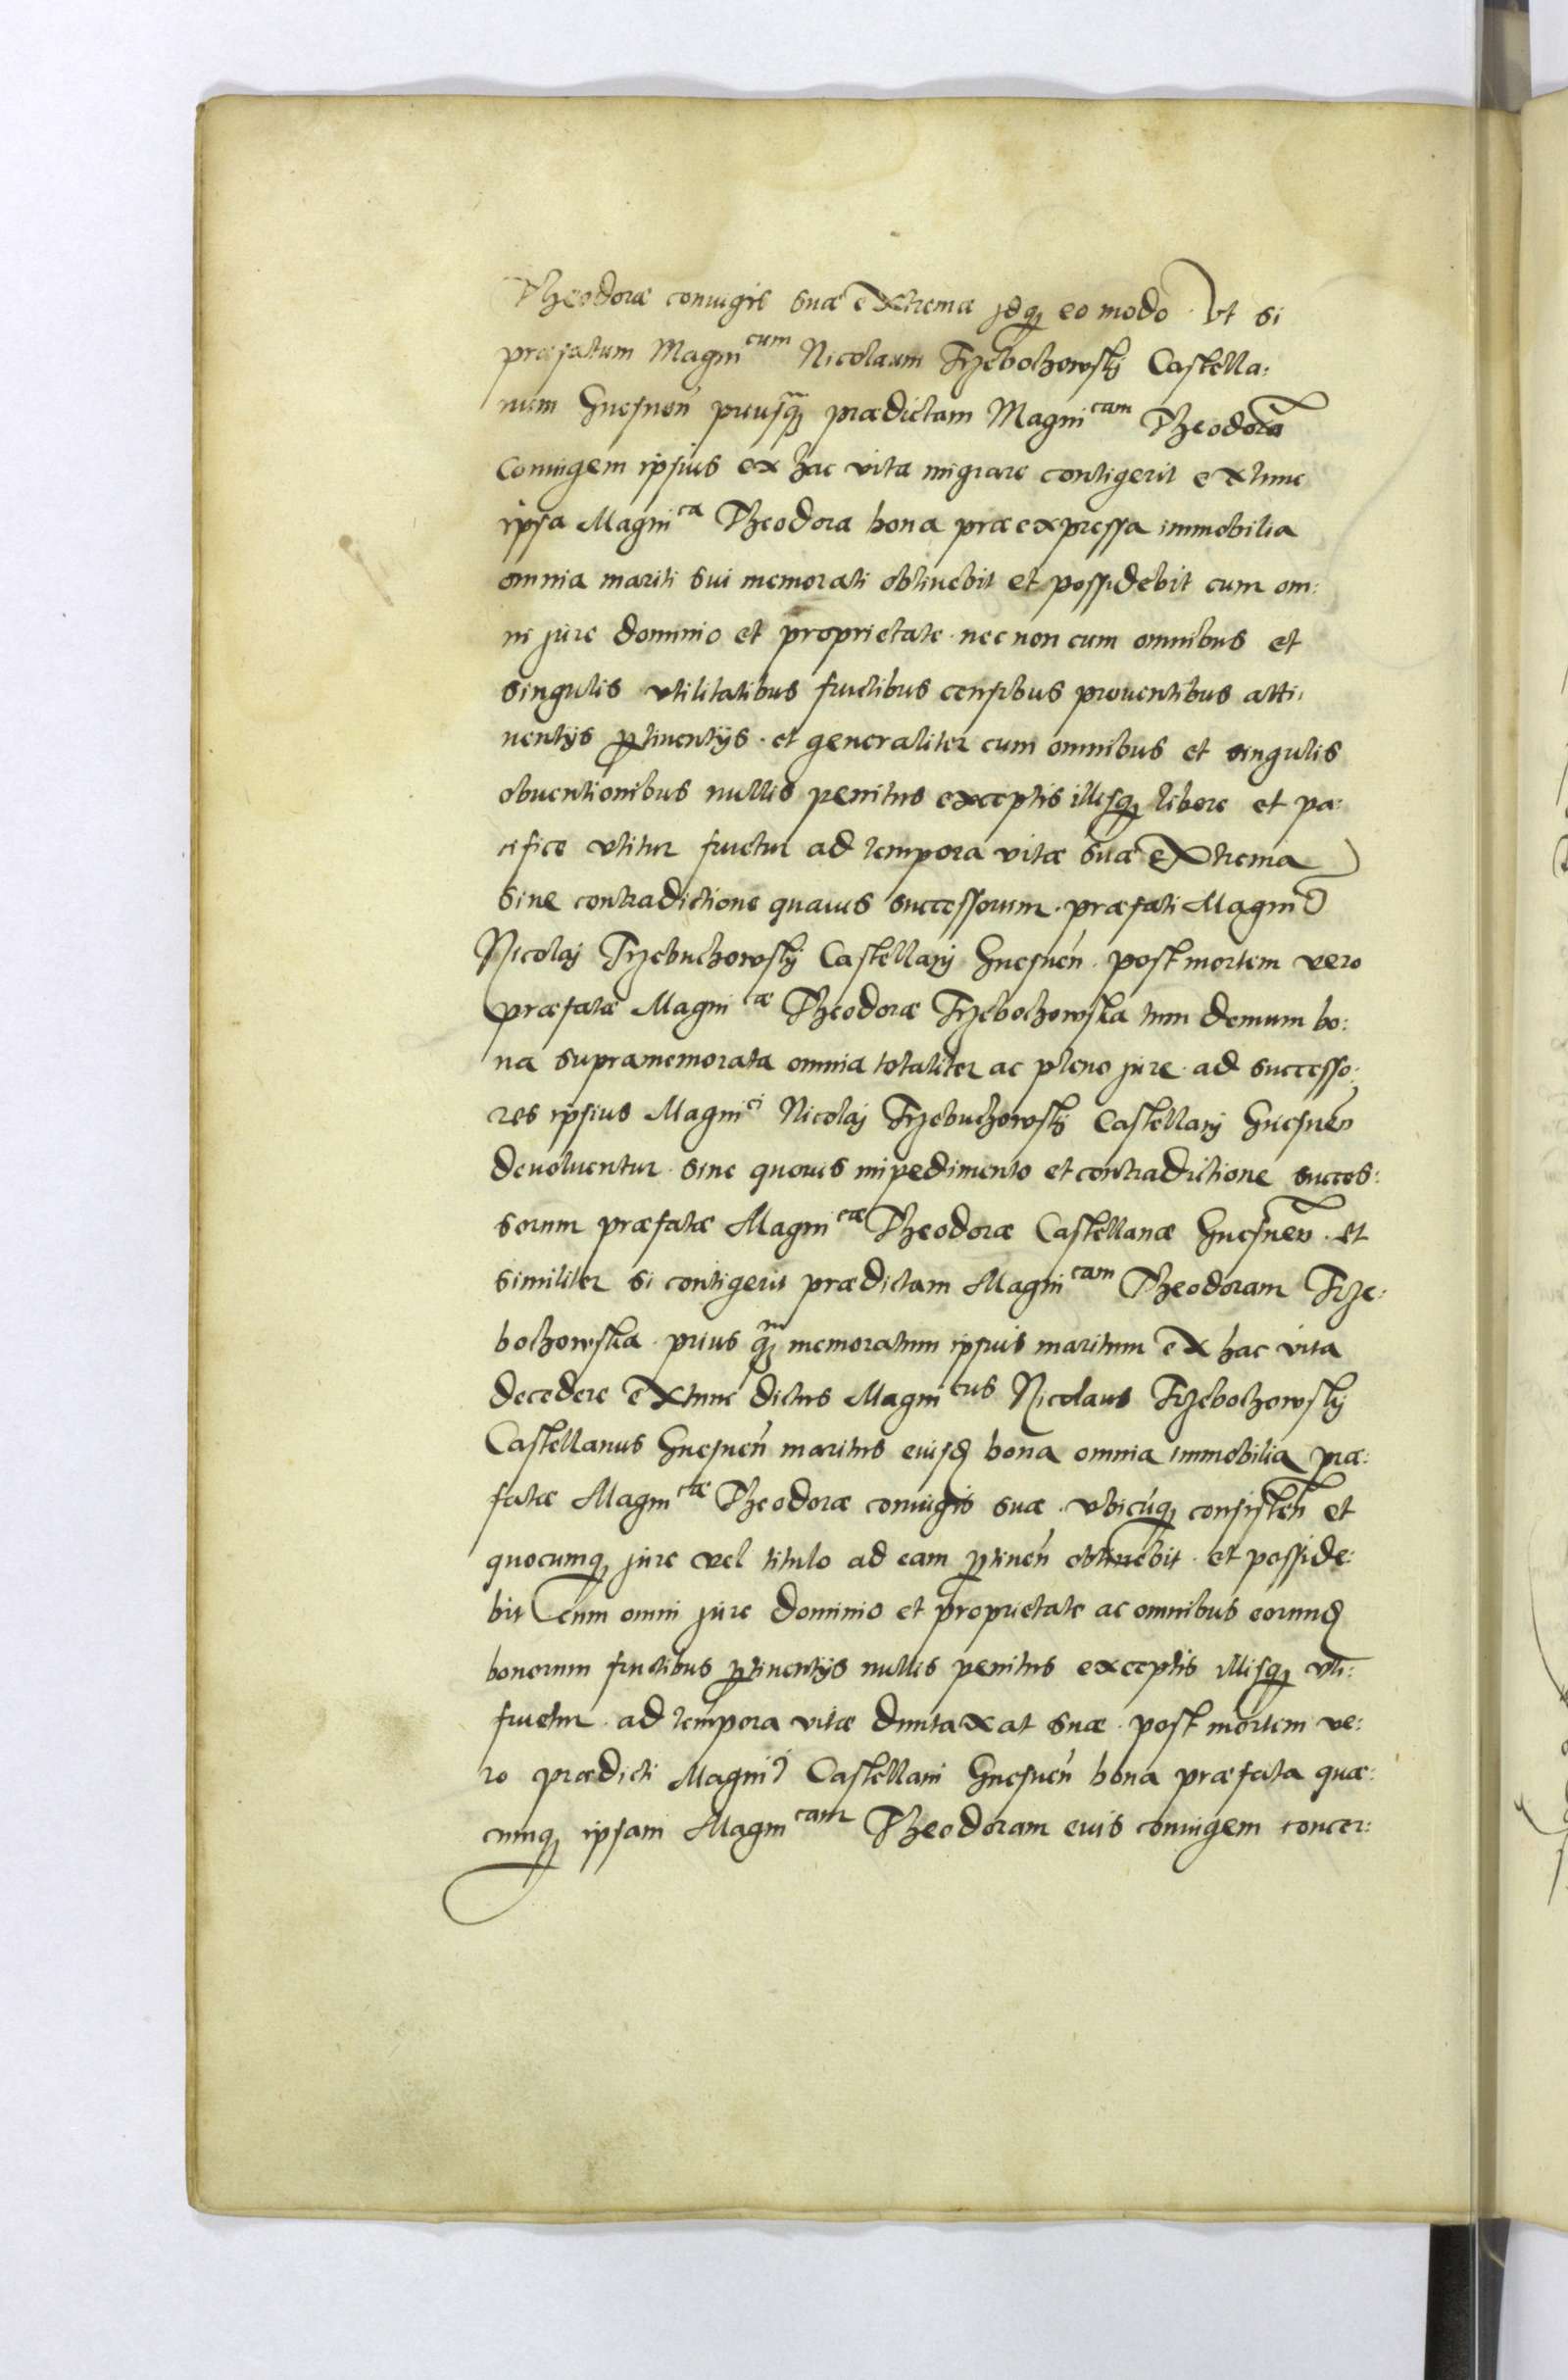 Theodoræ coniugis suæ extremæ idq; eo modo. Vt si
præfatum Magnicum Nicolaum Trzebochowsky Castella:
num Gnesnen̄ priusq̃; prædictam Magnicam Theodorā
Coniugem ipsius ex hac vita migrare contigerit extunc
ipsa Magnica Theodora bona præexpressa immobilia
omnia mariti sui memorati obtinebit et possidebit cum om:
ni jure dominio et proprietate. nec non cum omnibus et
singulis vtilitatibus fructibus censibus prouentibus atti:
nentijs ꝑtinentijs. et generaliter cum omnibus et singulis
obuentionibus nullis penitus exceptis illisq; libere et pa:
cifice vtitur fruetur ad tempora vitæ suæ extrema
sine contradictione quauis successorum. præfati Magnici
Nicolaj Trzebuchowsky Castellanj Gnesnen̄. post mortem vero
præfatæ Magnicæ Theodoræ Trzebochowska tum demum bo:
na supramemorata omnia totaliter ac pleno jure. ad successo:
res ipsius Magnici Nicolaj Trzebuchowsky Castellanj Gnesnen̄
deuoluentur. sine quouis impedimento et contradictione succes:
sorum præfatæ Magnicæ Theodoræ Castellanæ Gnesnen̄. et
similiter si contigerit prædictam Magnicam Theodoram Trze:
bochowska. prius q̃; memoratum ipsius maritum ex hac vita
decedere extunc dictus Magnicus Nicolaus Trzebochowsky
Castellanus Gnesnen̄ maritus eiusd. bona omnia immobilia præ:
fatæ Magnicæ Theodoræ coniugis suæ. vbicúq; consisten̄ et
quocumq; jure vel titulo ad eam ꝑtinen̄ obtinebit. et posside:
bit cum omni jure dominio et proprietate ac omnibus eorund.
bonorum fructibus ꝑtinentijs nullis penitus exceptis illisq; vti:
fruetur. ad tempora vitæ duntaxat suæ. post mortem ve:
ro prædicti Magnici Castellani Gnesnen̄ bona præfata quæ:
cunq; ipsam Magnicam Theodoram eius coniugem concer: